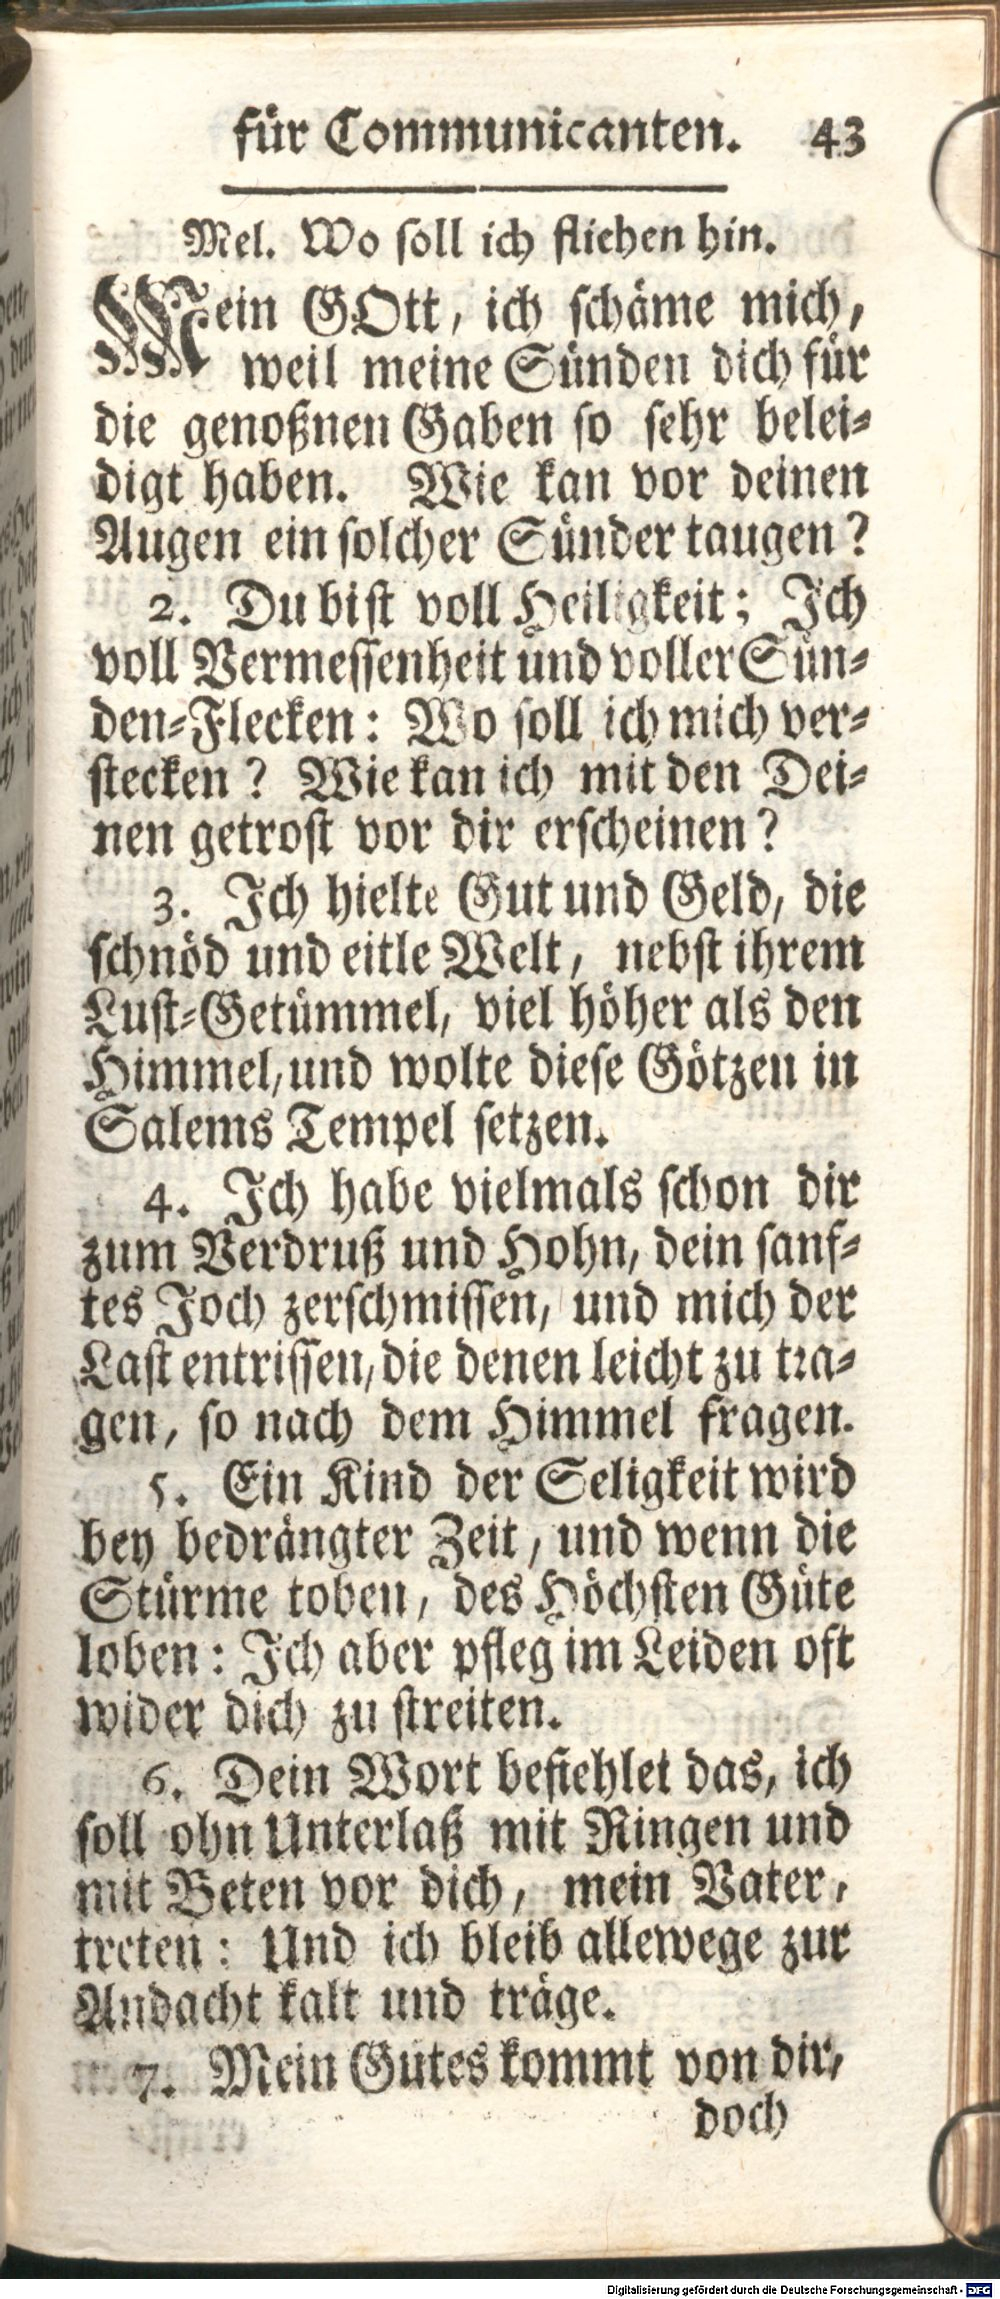 für Communicanten. 43
Mel. Wo soll ich fliehen hin.
Mein GOtt, ich schäme mich,
weil meine Sünden dich für
die genoßnen Gaben so sehr belei-
digt haben. Wie kan vor deinen
Augen ein solcher Sünder taugen?
2. Du bist voll Heiligkeit; Ich
voll Vermessenheit und voller Sün-
den-Flecken: Wo soll ich mich ver-
stecken? Wie kan ich mit den Dei-
nen getrost vor dir erscheinen?
3. Ich hielte Gut und Geld, die
schnöd und eitle Welt, nebst ihrem
Lust-Getümmel, viel höher als den
Himmel, und wolte diese Götzen in
Salems Tempel setzen.
4. Ich habe vielmals schon dir
zum Verdruß und Hohn, dein sanf-
tes Joch zerschmissen, und mich der
Last entrissen, die denen leicht zu tra-
gen, so nach dem Himmel fragen.
5. Ein Kind der Seligkeit wird
bey bedrängter Zeit, und wenn die
Stürme toben, des Höchsten Güte
loben: Ich aber pfleg im Leiden oft
wider dich zu streiten.
6. Dein Wort befiehlet das, ich
soll ohn Unterlaß mit Ringen und
mit Beten vor dich, mein Vater,
treten: Und ich bleib allewege zur
Andacht kalt und träge.
7. Mein Gutes kommt von dir,
doch
Digitalisierung gefördert durch die Deutsche Forschungsgemeinschaft - DFG